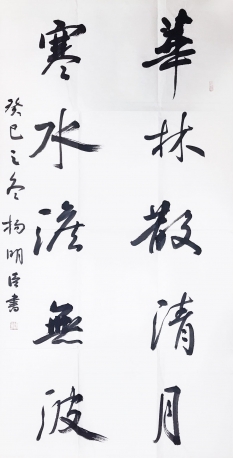 華林散清月
寒水澹無波
癸巳之冬楊明臣書